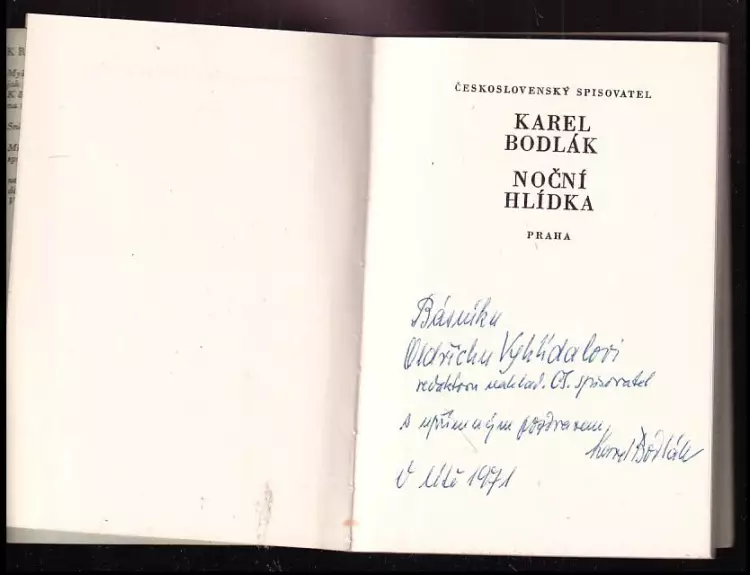 ČESKOSLOVENSKÝ SPISOVATEL
KAREL
BODLÁK
NOČNÍ
HLÍDKA
PRAHA
Básníku
Oldřichu Vyhlídalovi
redaktoru naklad. Čs. spisovatel
s upřímným pozdravem
Karel Bodlák
V létě 1971